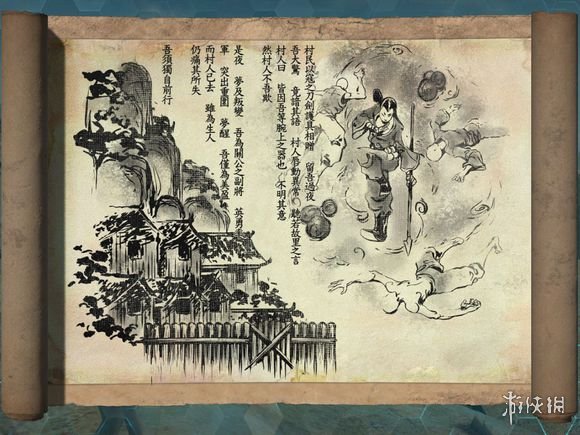 村民以寇之刀劍護具相贈 留吾過夜
吾大驚 竟諳其語 村人舉動異常 聽若故里之言
村人曰 皆因吾等腕上之也 不明其意
然村人不吾欺
是夜 夢及叛變 吾為關公之副將 英勇
軍 突出重圍 夢醒 吾僅為美盈
而村人已去 雖為生人
仍痛其所失
吾須獨自前行
游侠网